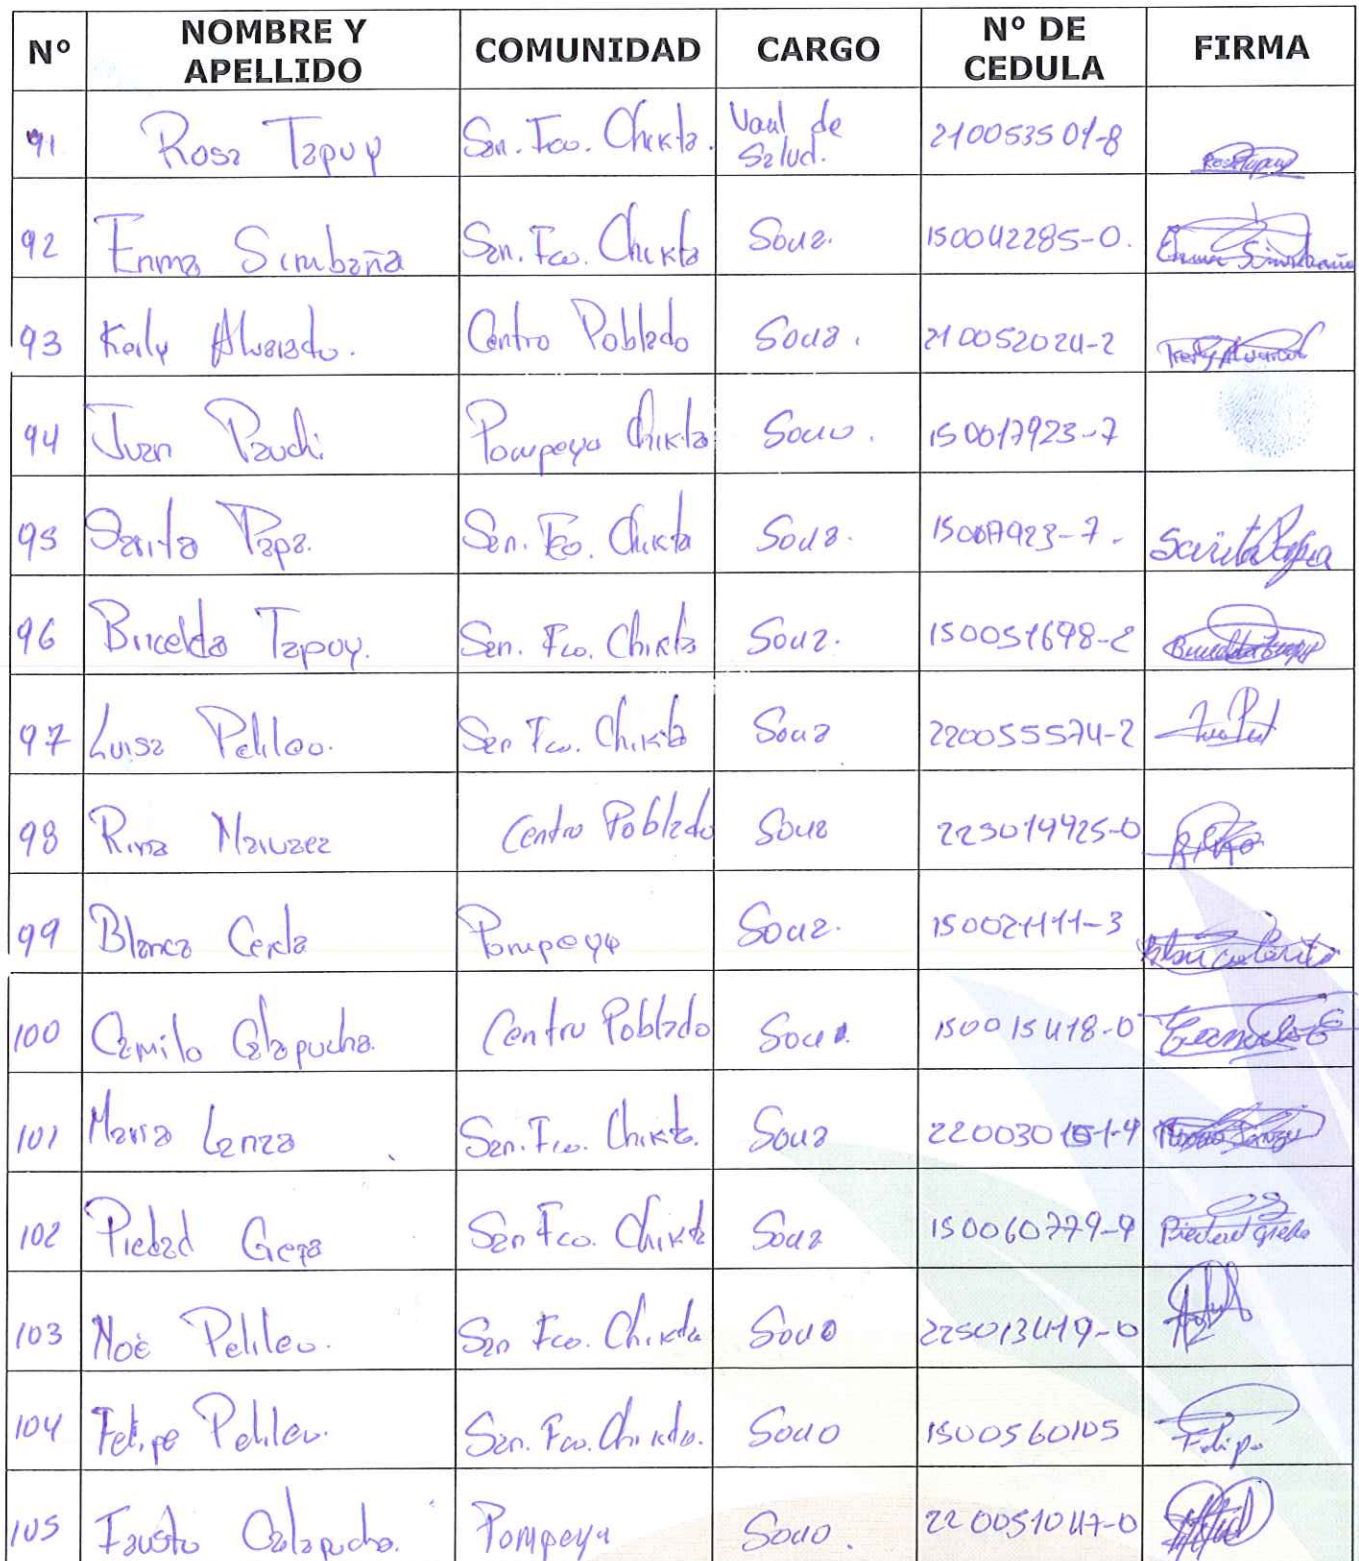 Nº | NOMBRE Y APELLIDO | COMUNIDAD | CARGO | Nº DE CEDULA | FIRMA
91 | Rosa Tapuy | San. Fco. Chikta. | Vocal de Salud. | 210053501-8 | Rosa Tapuy
92 | Enma Simbaña | San. Fco. Chikta | Socia. | 150042285-0. | Enma Simbaña
93 | Kerly Alvarado. | Centro Poblado | Socia. | 210052024-2 | Kerly Alvarado
94 | Juan Pauchi | Pompeya Chikta | Socio. | 150017923-7
95 | Sarita Papa. | San. Fco. Chikta | Socia. | 150017923-7. | Sarita Papa
96 | Bricelda Tapuy. | San. Fco. Chikta | Socia. | 150051698-2 | Bricelda Tapuy
97 | Luisa Pelileo. | San Fco. Chikta | Socia | 220055574-2
98 | Rina Narvaez | Centro Poblado | Socia | 223014925-0
99 | Blanca Cerda | Pompeya | Socia. | 150021111-3 | Blanca Cerda
100 | Camilo Calapucha. | Centro Poblado | Socio. | 150015418-0 | Camilo C
101 | Maria Lanza | San. Fco. Chikta. | Socia | 2200301-4 | Maria Lanza
102 | Piedad Grefa | San Fco. Chikta | Socia | 150060779-9 | Piedad Grefa
103 | Noè Pelileo. | San Fco. Chikta | Socio | 225013419-0
104 | Felipe Pelileo. | San. Fco. Chikta. | Socio | 1500560105 | Felipe
105 | Fausto Calapucha. | Pompeya | Socio. | 220051047-0